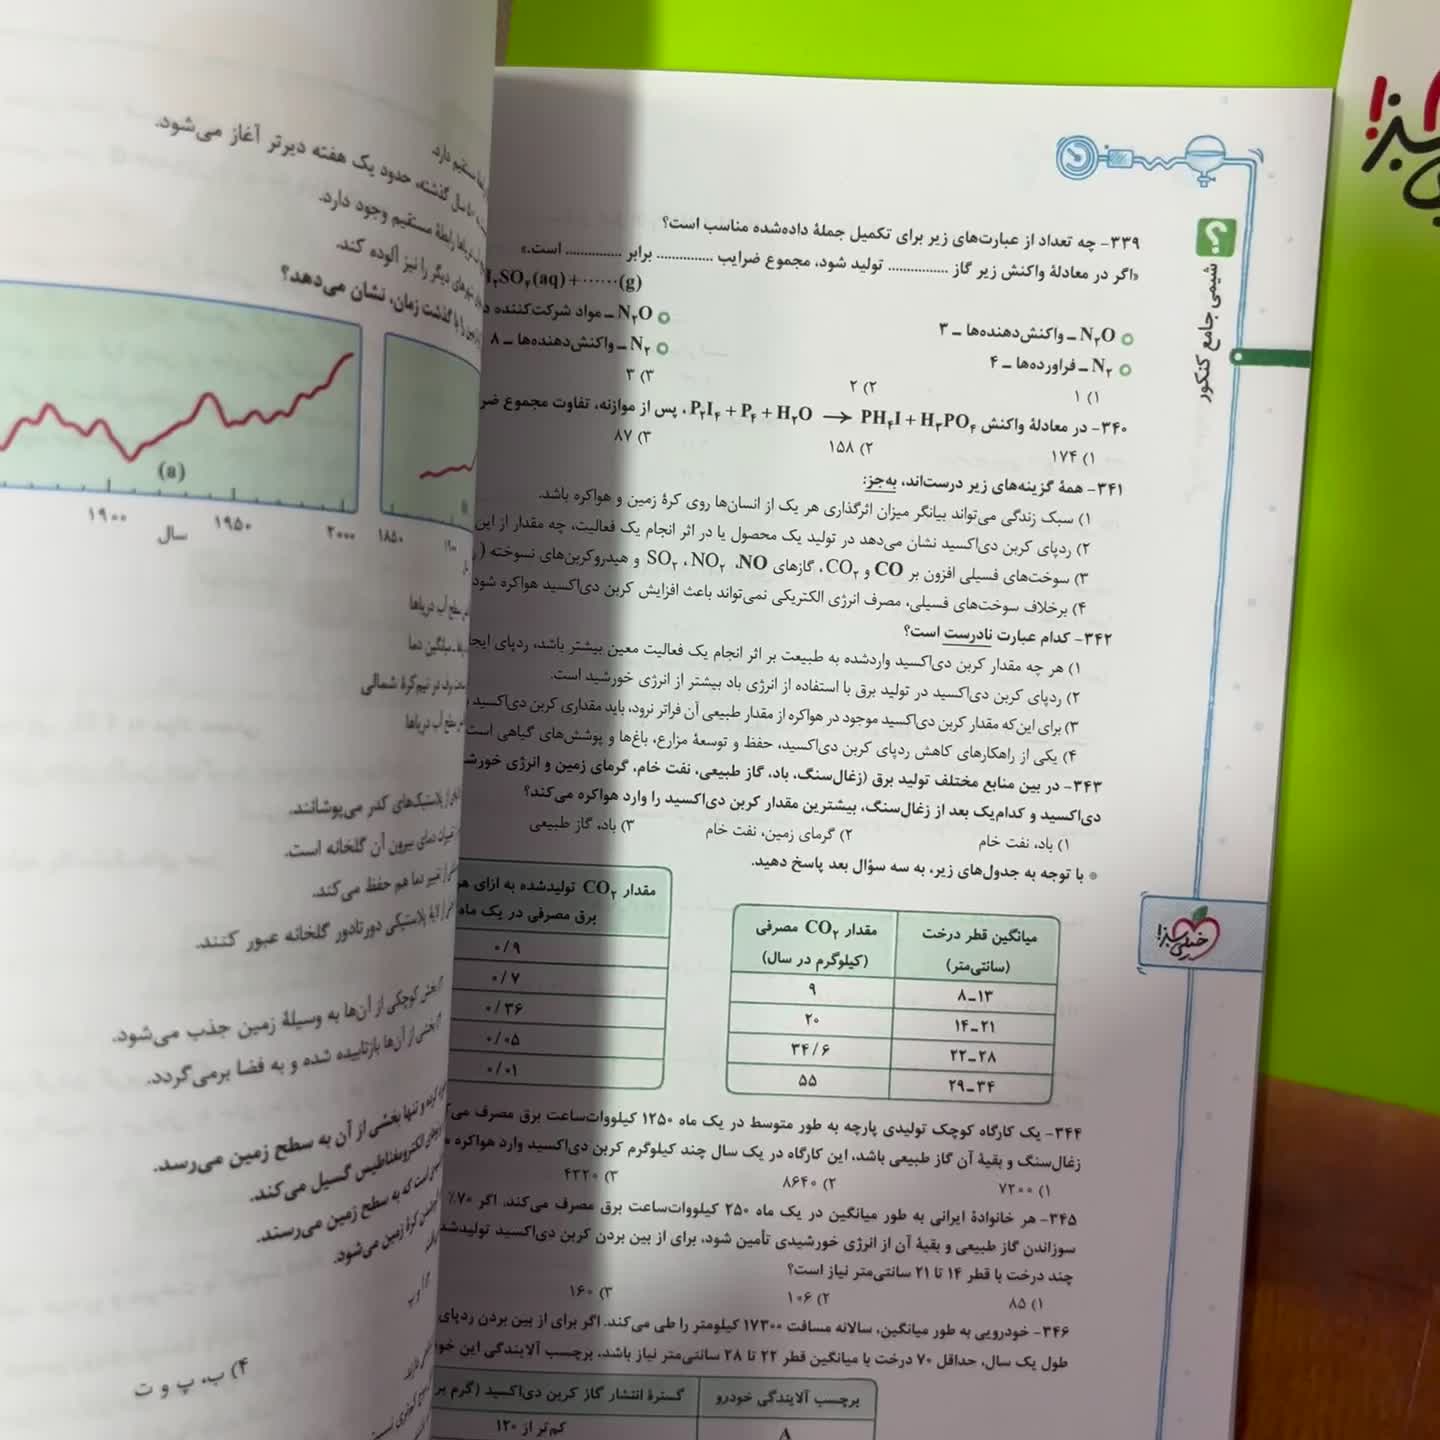 شیمی جامع کنکور
۳۳۹- چه تعداد از عبارت‌های زیر برای تکمیل جملهٔ داده‌شده مناسب است؟
«اگر در معادلهٔ واکنش زیر گاز .............. تولید شود، مجموع ضرایب .............. برابر .............. است.»
SO۴(aq) + ......(g)
N۲O ـ واکنش‌دهنده‌ها ـ ۳
N۲O ـ مواد شرکت‌کننده
N۲ ـ فراورده‌ها ـ ۴
N۲ ـ واکنش‌دهنده‌ها ـ ۸
۱) ۱
۲) ۲
۳) ۳
۳۴۰- در معادلهٔ واکنش P۲I۴ + P۴ + H۲O → PH۴I + H۳PO۴، پس از موازنه، تفاوت مجموع
۱) ۱۷۴
۲) ۱۵۸
۳) ۸۷
۳۴۱- همهٔ گزینه‌های زیر درست‌اند، به‌جز:
۱) سبک زندگی می‌تواند بیانگر میزان اثرگذاری هر یک از انسان‌ها روی کرهٔ زمین و هواکره باشد.
۲) ردپای کربن دی‌اکسید نشان می‌دهد در تولید یک محصول یا در اثر انجام یک فعالیت، چه مقدار از این
۳) سوخت‌های فسیلی افزون بر CO و CO۲، گازهای NO، NO۲، SO۲ و هیدروکربن‌های نسوخته
۴) برخلاف سوخت‌های فسیلی، مصرف انرژی الکتریکی نمی‌تواند باعث افزایش کربن دی‌اکسید هواکره شود
۳۴۲- کدام عبارت نادرست است؟
۱) هر چه مقدار کربن دی‌اکسید واردشده به طبیعت بر اثر انجام یک فعالیت معین بیشتر باشد، ردپای
۲) ردپای کربن دی‌اکسید در تولید برق با استفاده از انرژی باد بیشتر از انرژی خورشید است.
۳) برای این‌که مقدار کربن دی‌اکسید موجود در هواکره از مقدار طبیعی آن فراتر نرود، باید مقداری کربن دی‌اکسید
۴) یکی از راهکارهای کاهش ردپای کربن دی‌اکسید، حفظ و توسعهٔ مزارع، باغ‌ها و پوشش‌های گیاهی است
۳۴۳- در بین منابع مختلف تولید برق (زغال‌سنگ، باد، گاز طبیعی، نفت خام، گرمای زمین و انرژی
دی‌اکسید و کدام‌یک بعد از زغال‌سنگ، بیشترین مقدار کربن دی‌اکسید را وارد هواکره می‌کند؟
۱) باد، نفت خام
۲) گرمای زمین، نفت خام
۳) باد، گاز طبیعی
با توجه به جدول‌های زیر، به سه سؤال بعد پاسخ دهید.
میانگین قطر درخت (سانتی‌متر)
مقدار CO۲ مصرفی (کیلوگرم در سال)
۸ـ۱۳
۹
۱۴ـ۲۱
۲۰
۲۲ـ۲۸
۳۴/۶
۲۹ـ۳۴
۵۵
مقدار CO۲ تولیدشده به ازای
برق مصرفی در یک ماه
۰/۹
۰/۷
۰/۳۶
۰/۰۵
۰/۰۱
۳۴۴- یک کارگاه کوچک تولیدی پارچه به طور متوسط در یک ماه ۱۲۵۰ کیلووات‌ساعت برق مصرف
زغال‌سنگ و بقیهٔ آن گاز طبیعی باشد، این کارگاه در یک سال چند کیلوگرم کربن دی‌اکسید وارد هواکره
۱) ۷۲۰۰
۲) ۸۶۴۰
۳) ۴۳۲۰
۳۴۵- هر خانوادهٔ ایرانی به طور میانگین در یک ماه ۲۵۰ کیلووات‌ساعت برق مصرف می‌کند. اگر ۷۰٪
سوزاندن گاز طبیعی و بقیهٔ آن از انرژی خورشیدی تأمین شود، برای از بین بردن کربن دی‌اکسید
چند درخت با قطر ۱۴ تا ۲۱ سانتی‌متر نیاز است؟
۱) ۸۵
۲) ۱۰۶
۳) ۱۶۰
۳۴۶- خودرویی به طور میانگین، سالانه مسافت ۱۷۳۰۰ کیلومتر را طی می‌کند. اگر برای از بین بردن ردپای
طول یک سال، حداقل ۷۰ درخت با میانگین قطر ۲۲ تا ۲۸ سانتی‌متر نیاز باشد، برچسب آلایندگی این
برچسب آلایندگی خودرو
گسترهٔ انتشار گاز کربن دی‌اکسید (گرم
A
کم‌تر از ۱۲۰
خیلی سبز!
مستقیم دارد.
سال گذشته، حدود یک هفته دیرتر آغاز می‌شود.
رابطهٔ مستقیم وجود دارد.
شهرهای دیگر را نیز آلوده کند.
را با گذشت زمان، نشان می‌دهد؟
(a)
۱۹۰۰
۱۹۵۰
۲۰۰۰
سال
۱۸۵۰
۱۹۰۰
سطح آب دریاها
میانگین دما
برف در نیم‌کرهٔ شمالی
سطح آب دریاها
از پلاستیک‌های کدر می‌پوشانند.
تغییرات دمای بیرون آن گلخانه است.
از تغییر دما هم حفظ می‌کند.
از لایهٔ پلاستیکی دورتادور گلخانه عبور کنند.
بخش کوچکی از آن‌ها به وسیلهٔ زمین جذب می‌شود.
بخشی از آن‌ها بازتابیده شده و به فضا برمی‌گردد.
کرده و تنها بخشی از آن به سطح زمین می‌رسد.
الکترومغناطیس گسیل می‌کند.
است که به سطح زمین می‌رسند.
کرهٔ زمین می‌شود.
۴) ب، پ و ت